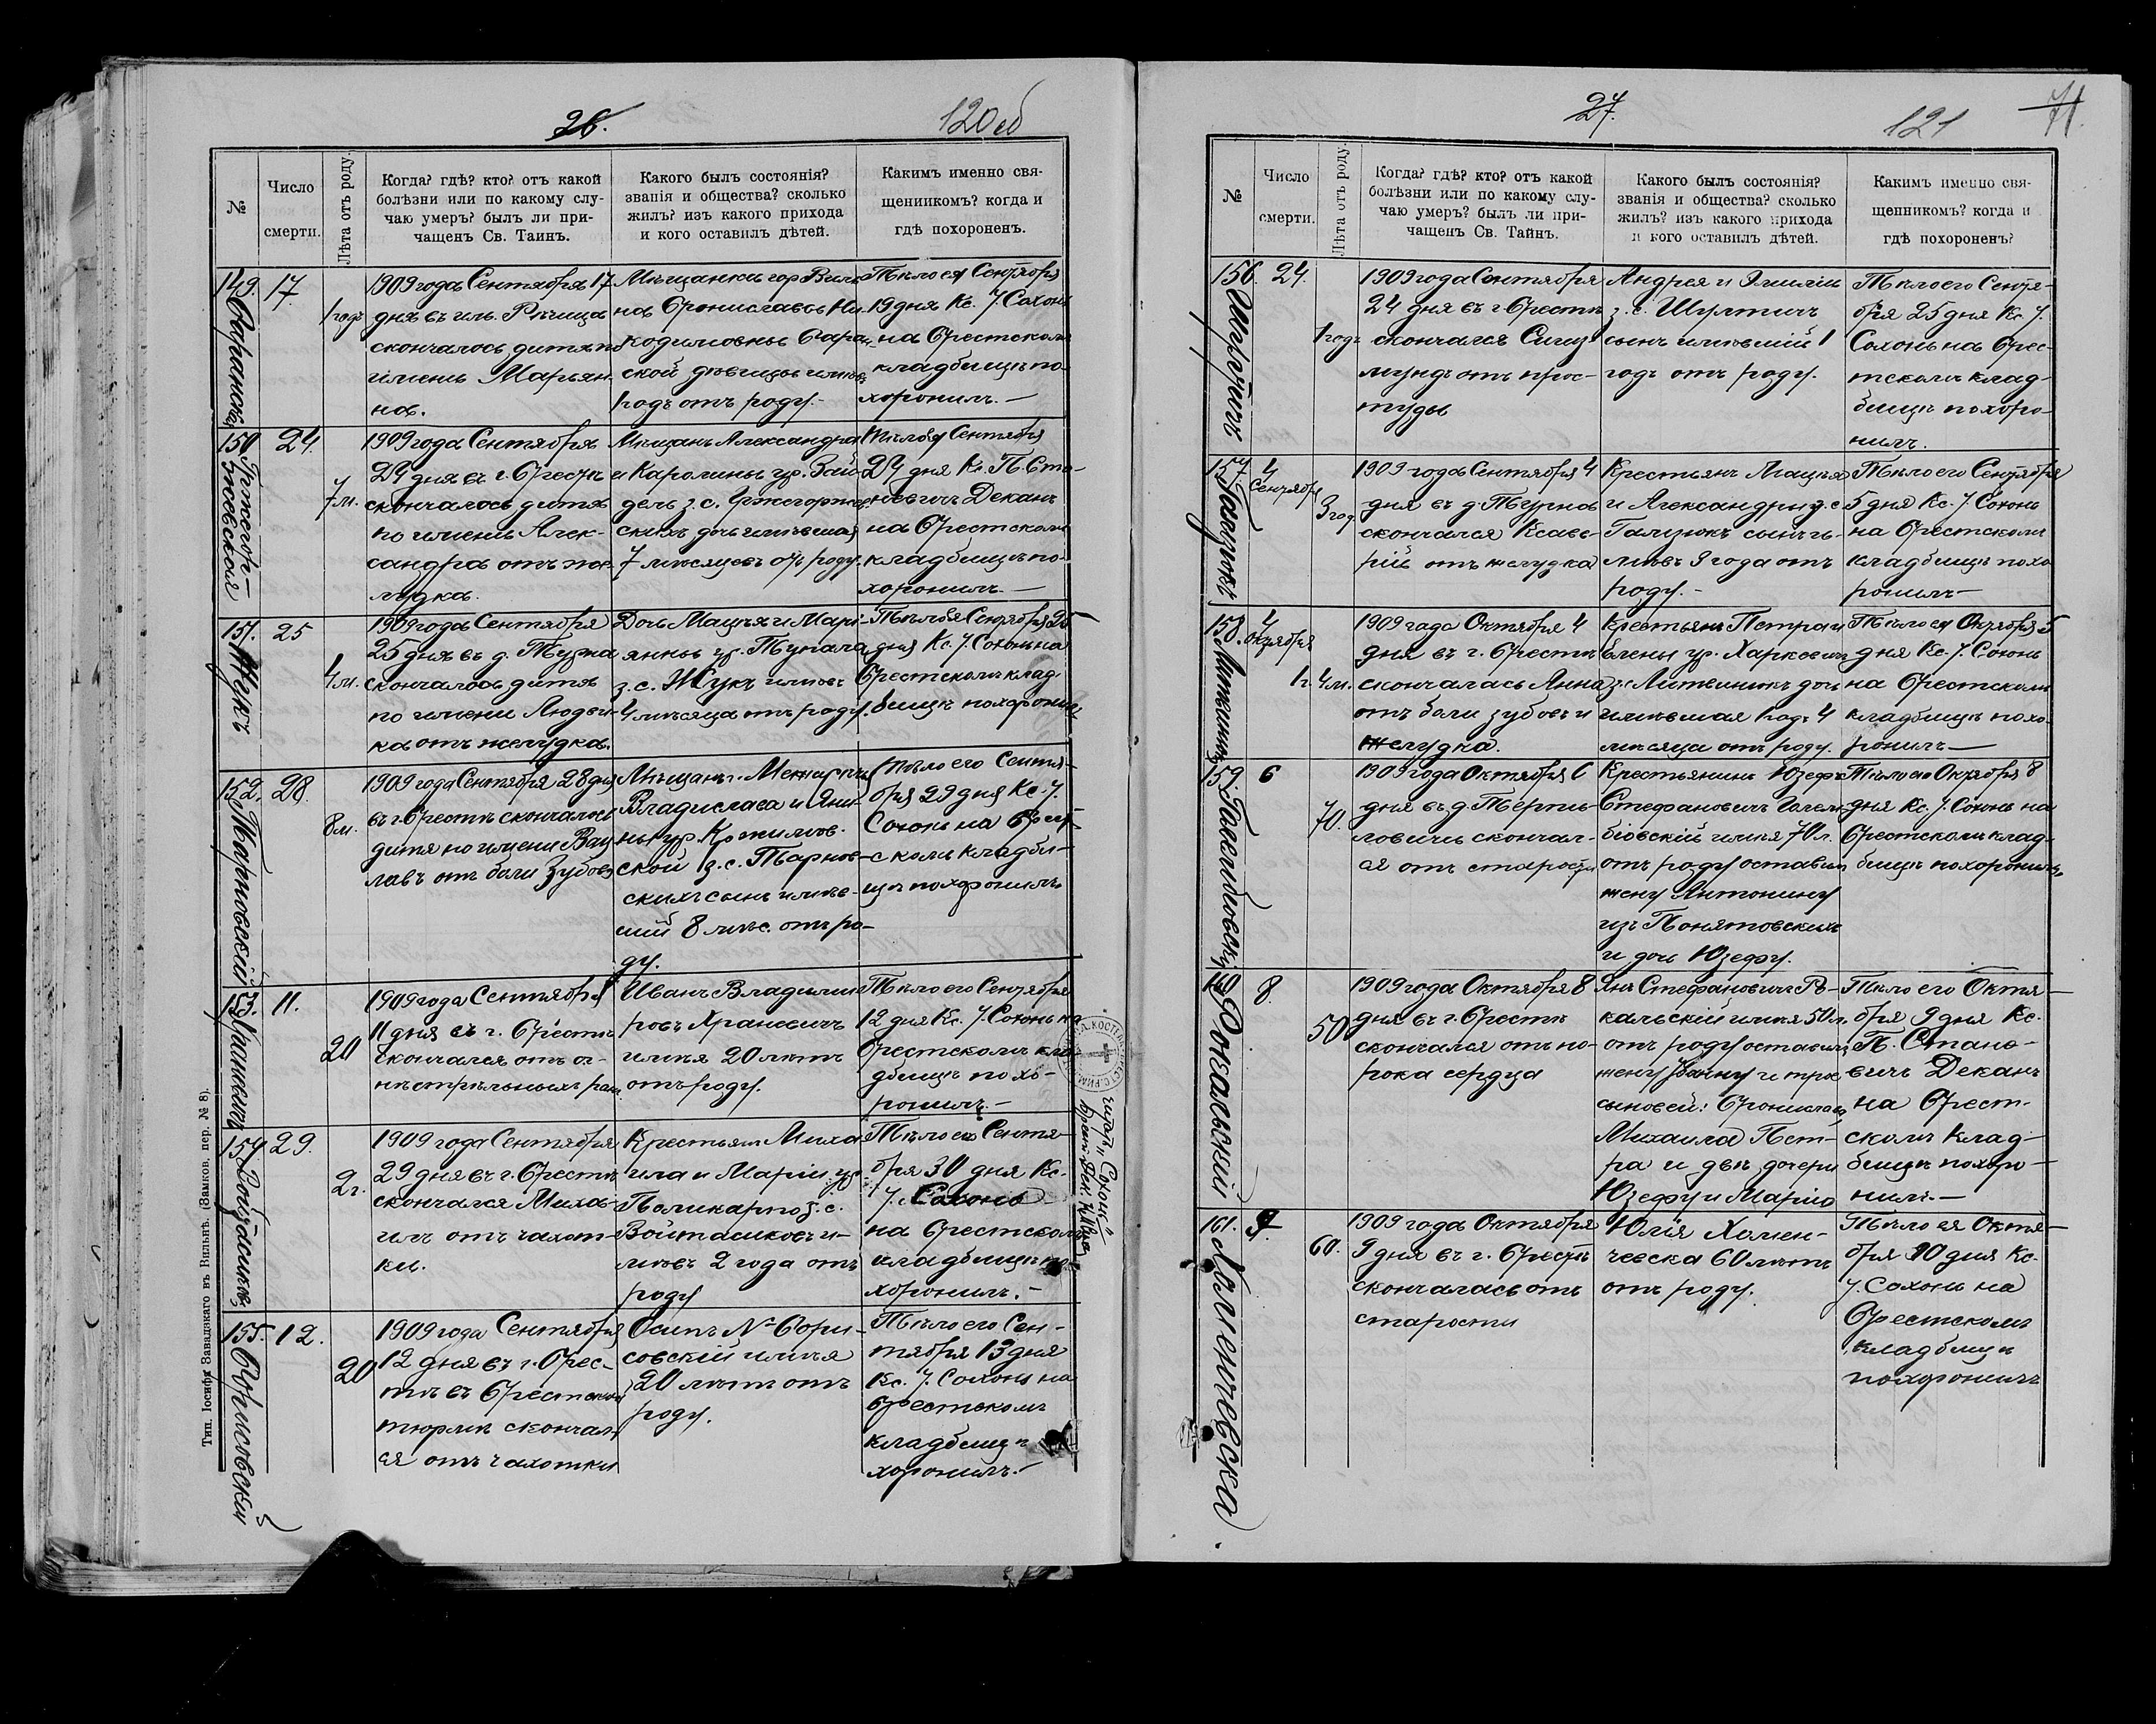 26.
120об
№
Число
смерти.
Лѣта отъ роду.
Когда? гдѣ? кто? отъ какой
болѣзни или по какому слу-
чаю умеръ? былъ ли при-
чащенъ Св. Таинъ.
Какого былъ состоянія?
званія и общества? сколько
жилъ? изъ какого прихода
и кого оставилъ дѣтей.
Какимъ именно свя-
щенникомъ? когда и
гдѣ похороненъ.
149.
17.
1 годъ
1909 года Сентября 17
дня въ им. Рѣчица
скончалось дитя по
имени Марьян-
на.
Мѣщанки гор Виль
на Брониславы Ни-
кодимовны Саран-
ской дѣвицы имѣв
1 годъ отъ роду.-
Тѣло ея Сентября
19 дня Кс. У. Сохонь
на Брестскомъ
кладбищѣ по-
хоронилъ.—
150
Гржегор-
жевская
24.
7 м.
1909 года Сентября
24 дня въ г. Брестѣ
скончалось дитя
по имени Алек-
сандра отъ же-
лудка.
Мѣщанъ Александра
и Каролины ур. Зай-
дель з. с. Гржегоржев-
скихъ дочь имѣвшая
7 мѣсяцевъ отъ роду.
Тѣло ея Сентября
24 дня Кс. П. Ста-
невичъ Деканъ
на Брестскомъ
кладбищѣ по-
хоронилъ.—
151.
Жукъ
25
4 м.
1909 года Сентября
25 дня въ д. Тюхна
скончалось дитя
по имени Людви-
ка отъ желудка.
Дочь Мацѣя и Марі-
янны ур. Тупала
з. с. Жукъ имѣв
4 мѣсяца отъ роду.
Тѣло ея Сентября 26
дня Кс. У. Сохонь на
Брестскомъ клад-
бищѣ похоронилъ
152.
Тарновскій
28.
8 м.
1909 года Сентября 28 дня
въ г. Брестѣ скончалось
дитя по имени Вац
лавъ отъ боли зубовъ
Мѣщанъ г.
Владислава и Яни-
ны ур.
ской з. с. Тарнов-
скихъ сынъ имѣв-
шій 8 мѣс. отъ ро-
ду.
Тѣло его Сентя-
бря 29 дня Кс. У.
Сохонь на Брест-
скомъ кладби-
щѣ похоронилъ
153.
Храневичъ
11.
20
1909 года Сентября
11 дня въ г. Брестѣ
скончался отъ ог-
нестрѣльныхъ ран
Иванъ Владимі
ровъ Храневичъ
имѣя 20 лѣтъ
отъ роду.
Тѣло его Сентября
12 дня Кс. У. Сохонь на
Брестскомъ кла-
дбищѣ похо-
ронилъ.—
154.
Войтасикъ
29.
2 г.
1909 года Сентября
29 дня въ г. Брестѣ
скончался Миха-
илъ отъ чахот-
ки.
Крестьянъ Миха
ила и Маріи ур.
Поликарпо з. с.
Войтасиковъ и-
мѣвъ 2 года отъ
роду
Тѣло его Сентя-
бря 30 дня Кс.
У. Сохонь
на Брестскомъ
кладбищѣ по-
хоронилъ.—
155.
Борисовскій
12.
20
1909 года Сентября
12 дня въ г. Брес-
тѣ въ Брестской
тюрмѣ скончал-
ся отъ чахотки
Осипъ N Бори-
совскій имѣя
20 лѣтъ отъ
роду.
Тѣло его Сен-
тября 13 дня
Кс. У. Сохонь на
Брестскомъ
кладбищѣ
хоронилъ.—
Тип. Іосифа Завадзкаго въ Вильнѣ. (Замков. пер. № 8).
27.
121
71.
№
Число
смерти.
Лѣта отъ роду.
Когда? гдѣ? кто? отъ какой
болѣзни или по какому слу-
чаю умеръ? былъ ли при-
чащенъ Св. Тайнъ.
Какого былъ состоянія?
званія и общества? сколько
жилъ? изъ какого прихода
и кого оставилъ дѣтей.
Какимъ именно свя-
щенникомъ? когда и
гдѣ похороненъ?
156.
24.
1 годъ
1909 года Сентября
24 дня въ г. Брестѣ
скончался Сигиз-
мундъ отъ прос-
туды
Андрея и Эмиліи
з. с. Шултичъ
сынъ имѣвшій 1
годъ отъ роду.
Тѣло его Сентя-
бря 25 дня Кс. У.
Сохонь на Брес-
тскомъ клад-
бищѣ похоро-
нилъ.
157
Гализюкъ
4
Сентября
3 год.
1909 года Сентября 4
дня въ д. Тюхна
скончался Ксаве-
рій отъ желудка
Крестьянъ Мацѣя
и Александры з. с.
Гализюкъ сынъ и-
мѣвъ 3 года отъ
роду.-
Тѣло его Сентября
5 дня Кс. У. Сохонь
на Брестскомъ
кладбищѣ похо
ронилъ—
158.
Литвинюкъ
4
Октября
1 г. 4 м.
1909 года Октября 4
дня въ г. Брестѣ
скончалась Анна
отъ боли зубовъ и
желудка.
Крестьянъ Петра и
Елены ур. Харкевичъ
з. с. Литвинюкъ дочь
имѣвшая 1 годъ 4
мѣсяца отъ роду.
Тѣло ея Октября 5
дня Кс. У. Сохонь
на Брестскомъ
кладбищѣ похо-
ронилъ—
159.
6
70.
1909 года Октября 6
дня въ д. Терпи-
ловичи скончал-
ся отъ старости
Крестьянинъ Юзефъ
Стефановичъ Голем-
біовскій имѣя 70 л.
отъ роду оставилъ
жену Антонину
изъ Понятовскихъ
и дочь Юзефу.
Тѣло его Октября 8
дня Кс. У. Сохонь на
Брестскомъ клад-
бищѣ похоронилъ
160
Рокальскій
8.
50
1909 года Октября 8
дня въ г. Брестѣ
скончался отъ по-
рока сердца
Янъ Стефановичъ Ро-
кальскій имѣя 50 л.
отъ роду оставилъ
жену Іоанну и трое
сыновей: Бронислава
Михаила Пет-
ра и двѣ дочери
Юзефу и Марію
Тѣло его Октя-
бря 9 дня Кс.
П. Стане-
вичъ Деканъ
на Брест-
скомъ клад-
бищѣ похоро-
нилъ.—
161.
9.
60.
1909 года Октября
9 дня въ г. Брестѣ
скончалась отъ
старости
Юлія Хомен-
чевска 60 лѣтъ
отъ роду.
Тѣло ея Октя-
бря 10 дня Кс.
У. Сохонь на
Брестскомъ
кладбищѣ
похоронилъ